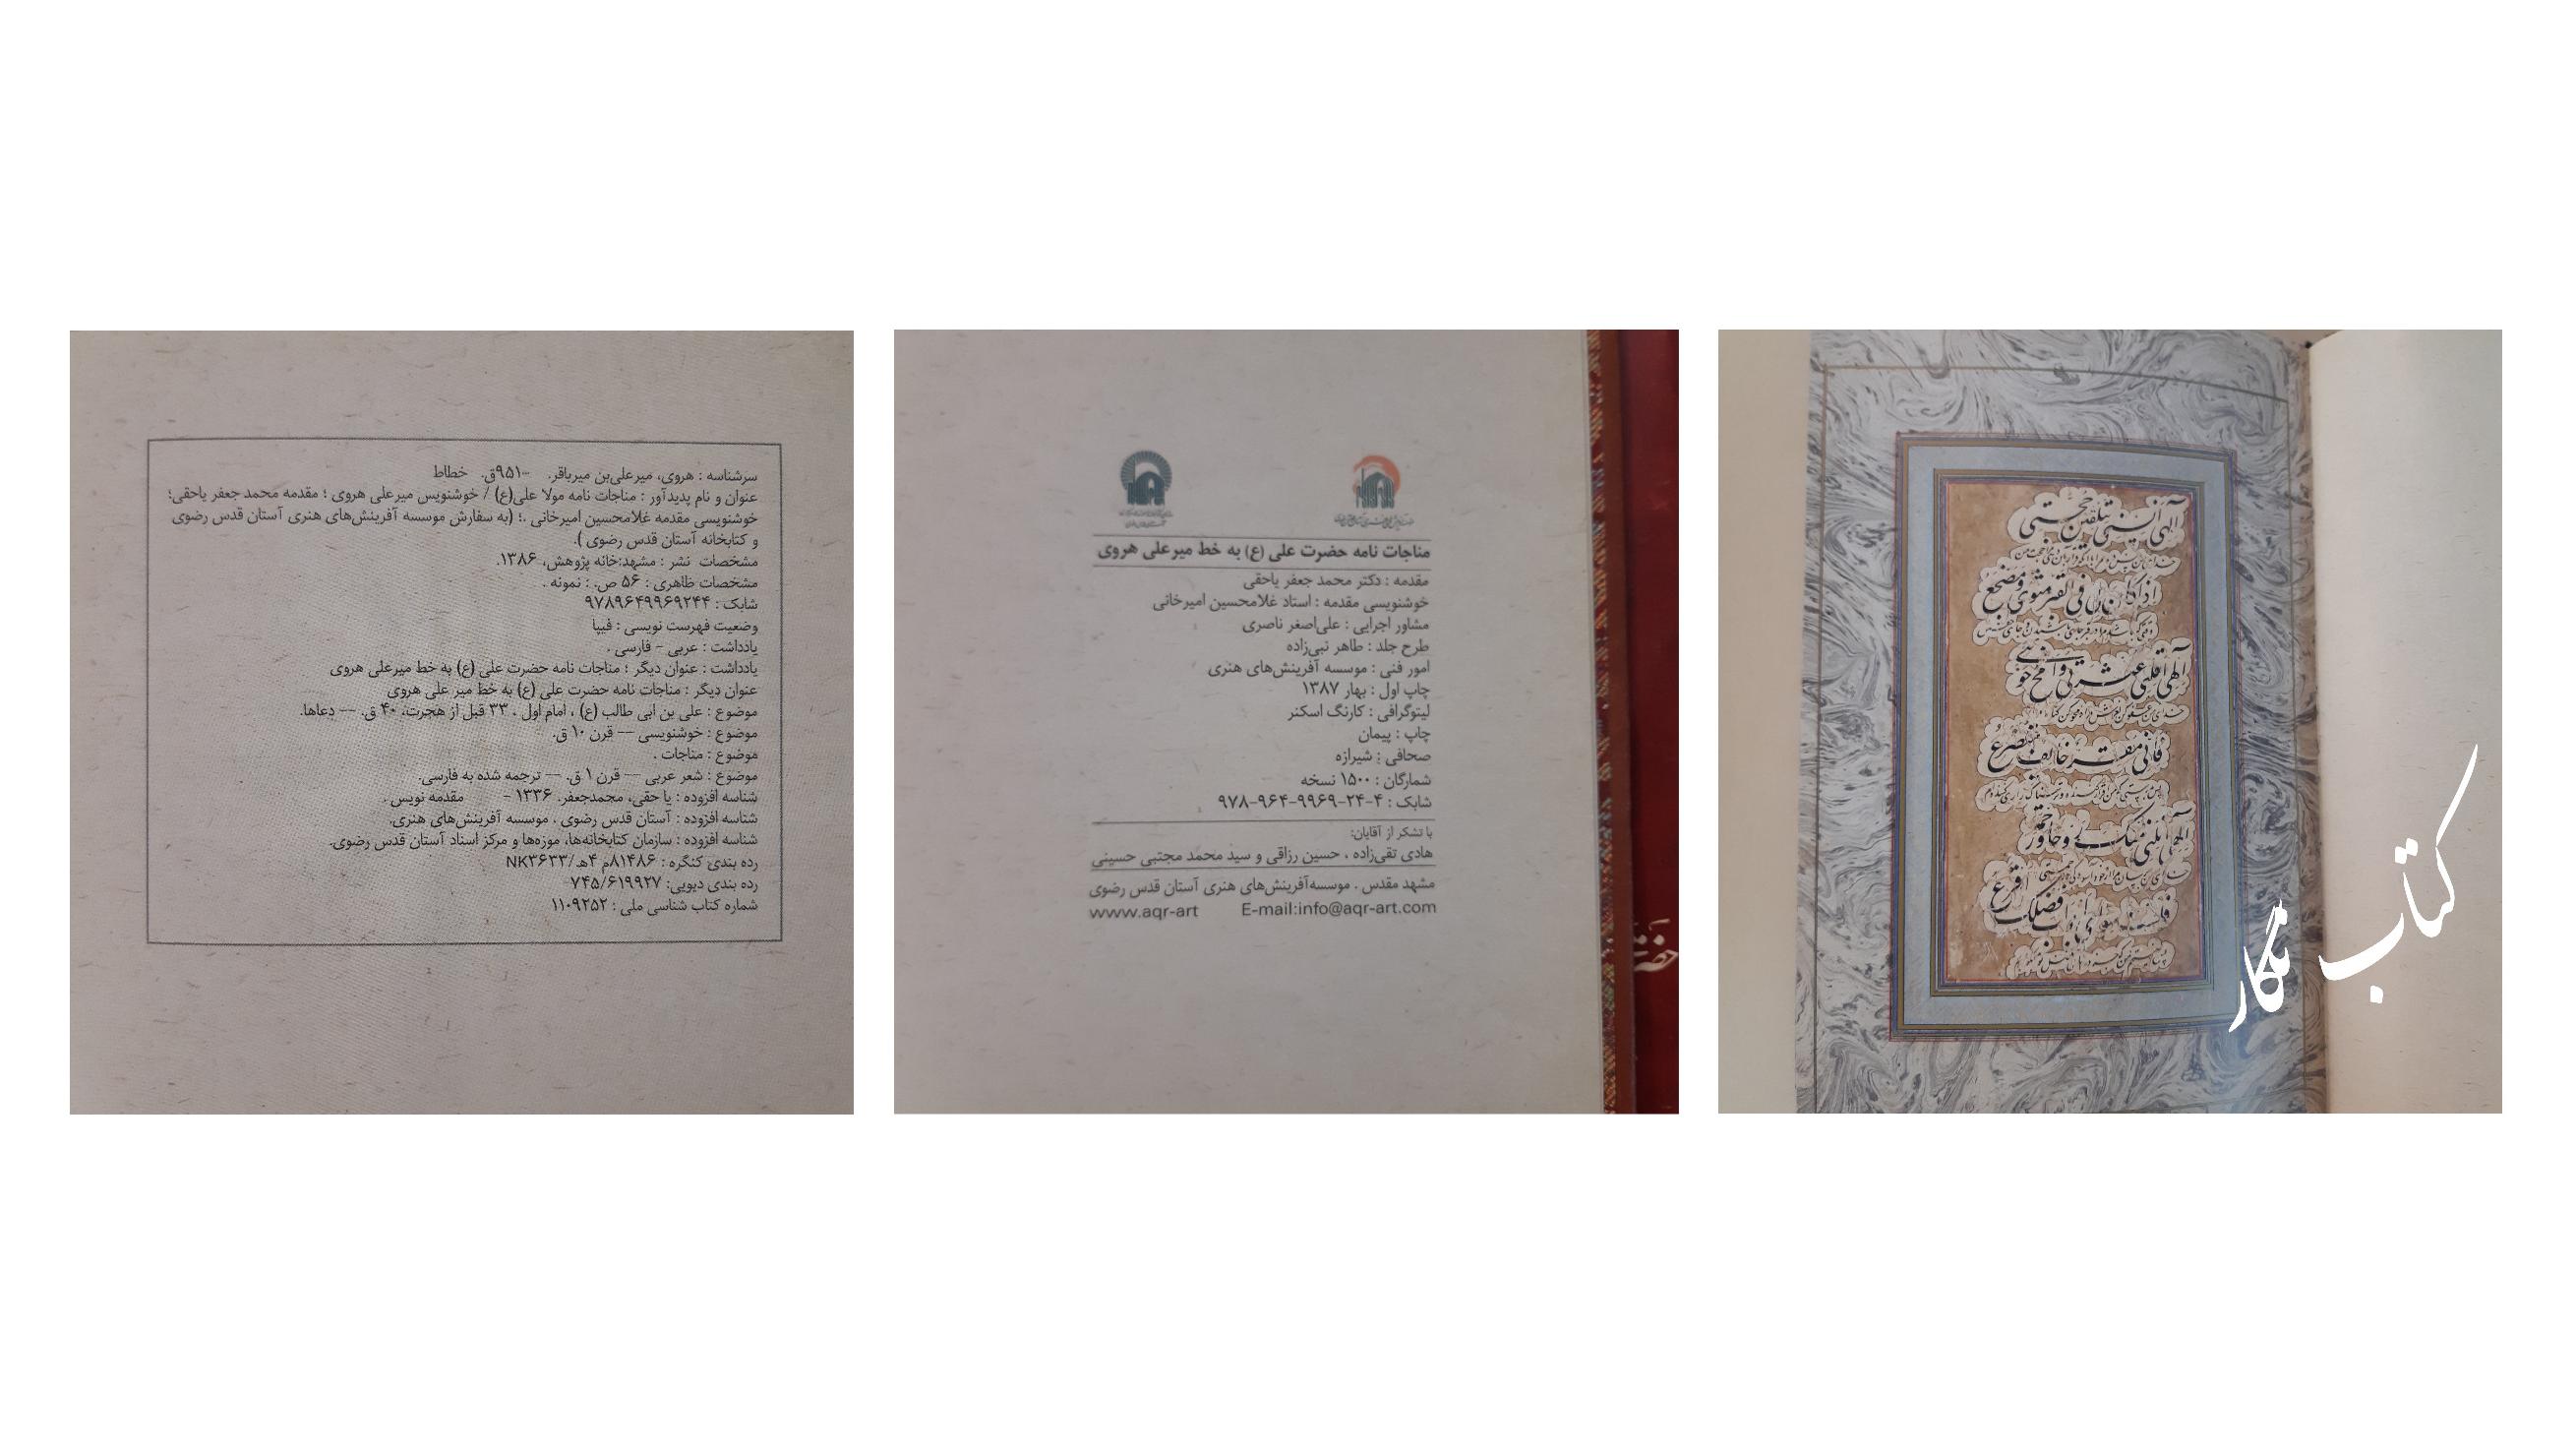 سرشناسه : هروی، میرعلی‌بن میرباقر. -۹۵۱ق. خطاط
عنوان و نام پدیدآور : مناجات نامه مولا علی(ع) / خوشنویس میرعلی هروی ؛ مقدمه محمد جعفر یاحقی؛
خوشنویسی مقدمه غلامحسین امیرخانی .؛ (به سفارش موسسه آفرینش‌های هنری آستان قدس رضوی
و کتابخانه آستان قدس رضوی ).
مشخصات نشر : مشهد:خانه پژوهش، ۱۳۸۶.
مشخصات ظاهری : ۵۶ ص. : نمونه .
شابک : ۹۷۸۹۶۴۹۹۶۹۲۴۴
وضعیت فهرست نویسی : فیپا
یادداشت : عربی - فارسی .
یادداشت : عنوان دیگر ؛ مناجات نامه حضرت علی (ع) به خط میرعلی هروی
عنوان دیگر : مناجات نامه حضرت علی (ع) به خط میر علی هروی
موضوع : علی بن ابی طالب (ع) ، امام اول ، ۳۳ قبل از هجرت، ۴۰ ق. -- دعاها.
موضوع : خوشنویسی -- قرن ۱۰ ق.
موضوع : مناجات .
موضوع : شعر عربی -- قرن ۱ ق. -- ترجمه شده به فارسی.
شناسه افزوده : یا حقی، محمدجعفر. ۱۳۳۶ - مقدمه نویس .
شناسه افزوده : آستان قدس رضوی ، موسسه آفرینش‌های هنری.
شناسه افزوده : سازمان کتابخانه‌ها، موزه‌ها و مرکز اسناد آستان قدس رضوی.
رده بندی کنگره : ۸۱۴۸۶م ۴هـ/NK۳۶۳۳
رده بندی دیویی: ۷۴۵/۶۱۹۹۲۷
شماره کتاب شناسی ملی : ۱۱۰۹۲۵۲
مناجات نامه حضرت علی (ع) به خط میرعلی هروی
مقدمه : دکتر محمد جعفر یاحقی
خوشنویسی مقدمه : استاد غلامحسین امیرخانی
مشاور اجرایی : علی‌اصغر ناصری
طرح جلد : طاهر نبی‌زاده
امور فنی : موسسه آفرینش‌های هنری
چاپ اول : بهار ۱۳۸۷
لیتوگرافی : کارنگ اسکنر
چاپ : پیمان
صحافی : شیرازه
شمارگان : ۱۵۰۰ نسخه
شابک : ۴-۲۴-۹۹۶۹-۹۶۴-۹۷۸
با تشکر از آقایان:
هادی تقی‌زاده ، حسین رزاقی و سید محمد مجتبی حسینی
مشهد مقدس . موسسه‌آفرینش‌های هنری آستان قدس رضوی
www.aqr-art E-mail:info@aqr-art.com
الهی آنسنی بتلقین حجتی
اذا کان لی فی القبر مثوی و مضجع
الهی اقلنی عثرتی وامح حوبتی
فانی مقر خائف متضرع
کتاب نگار